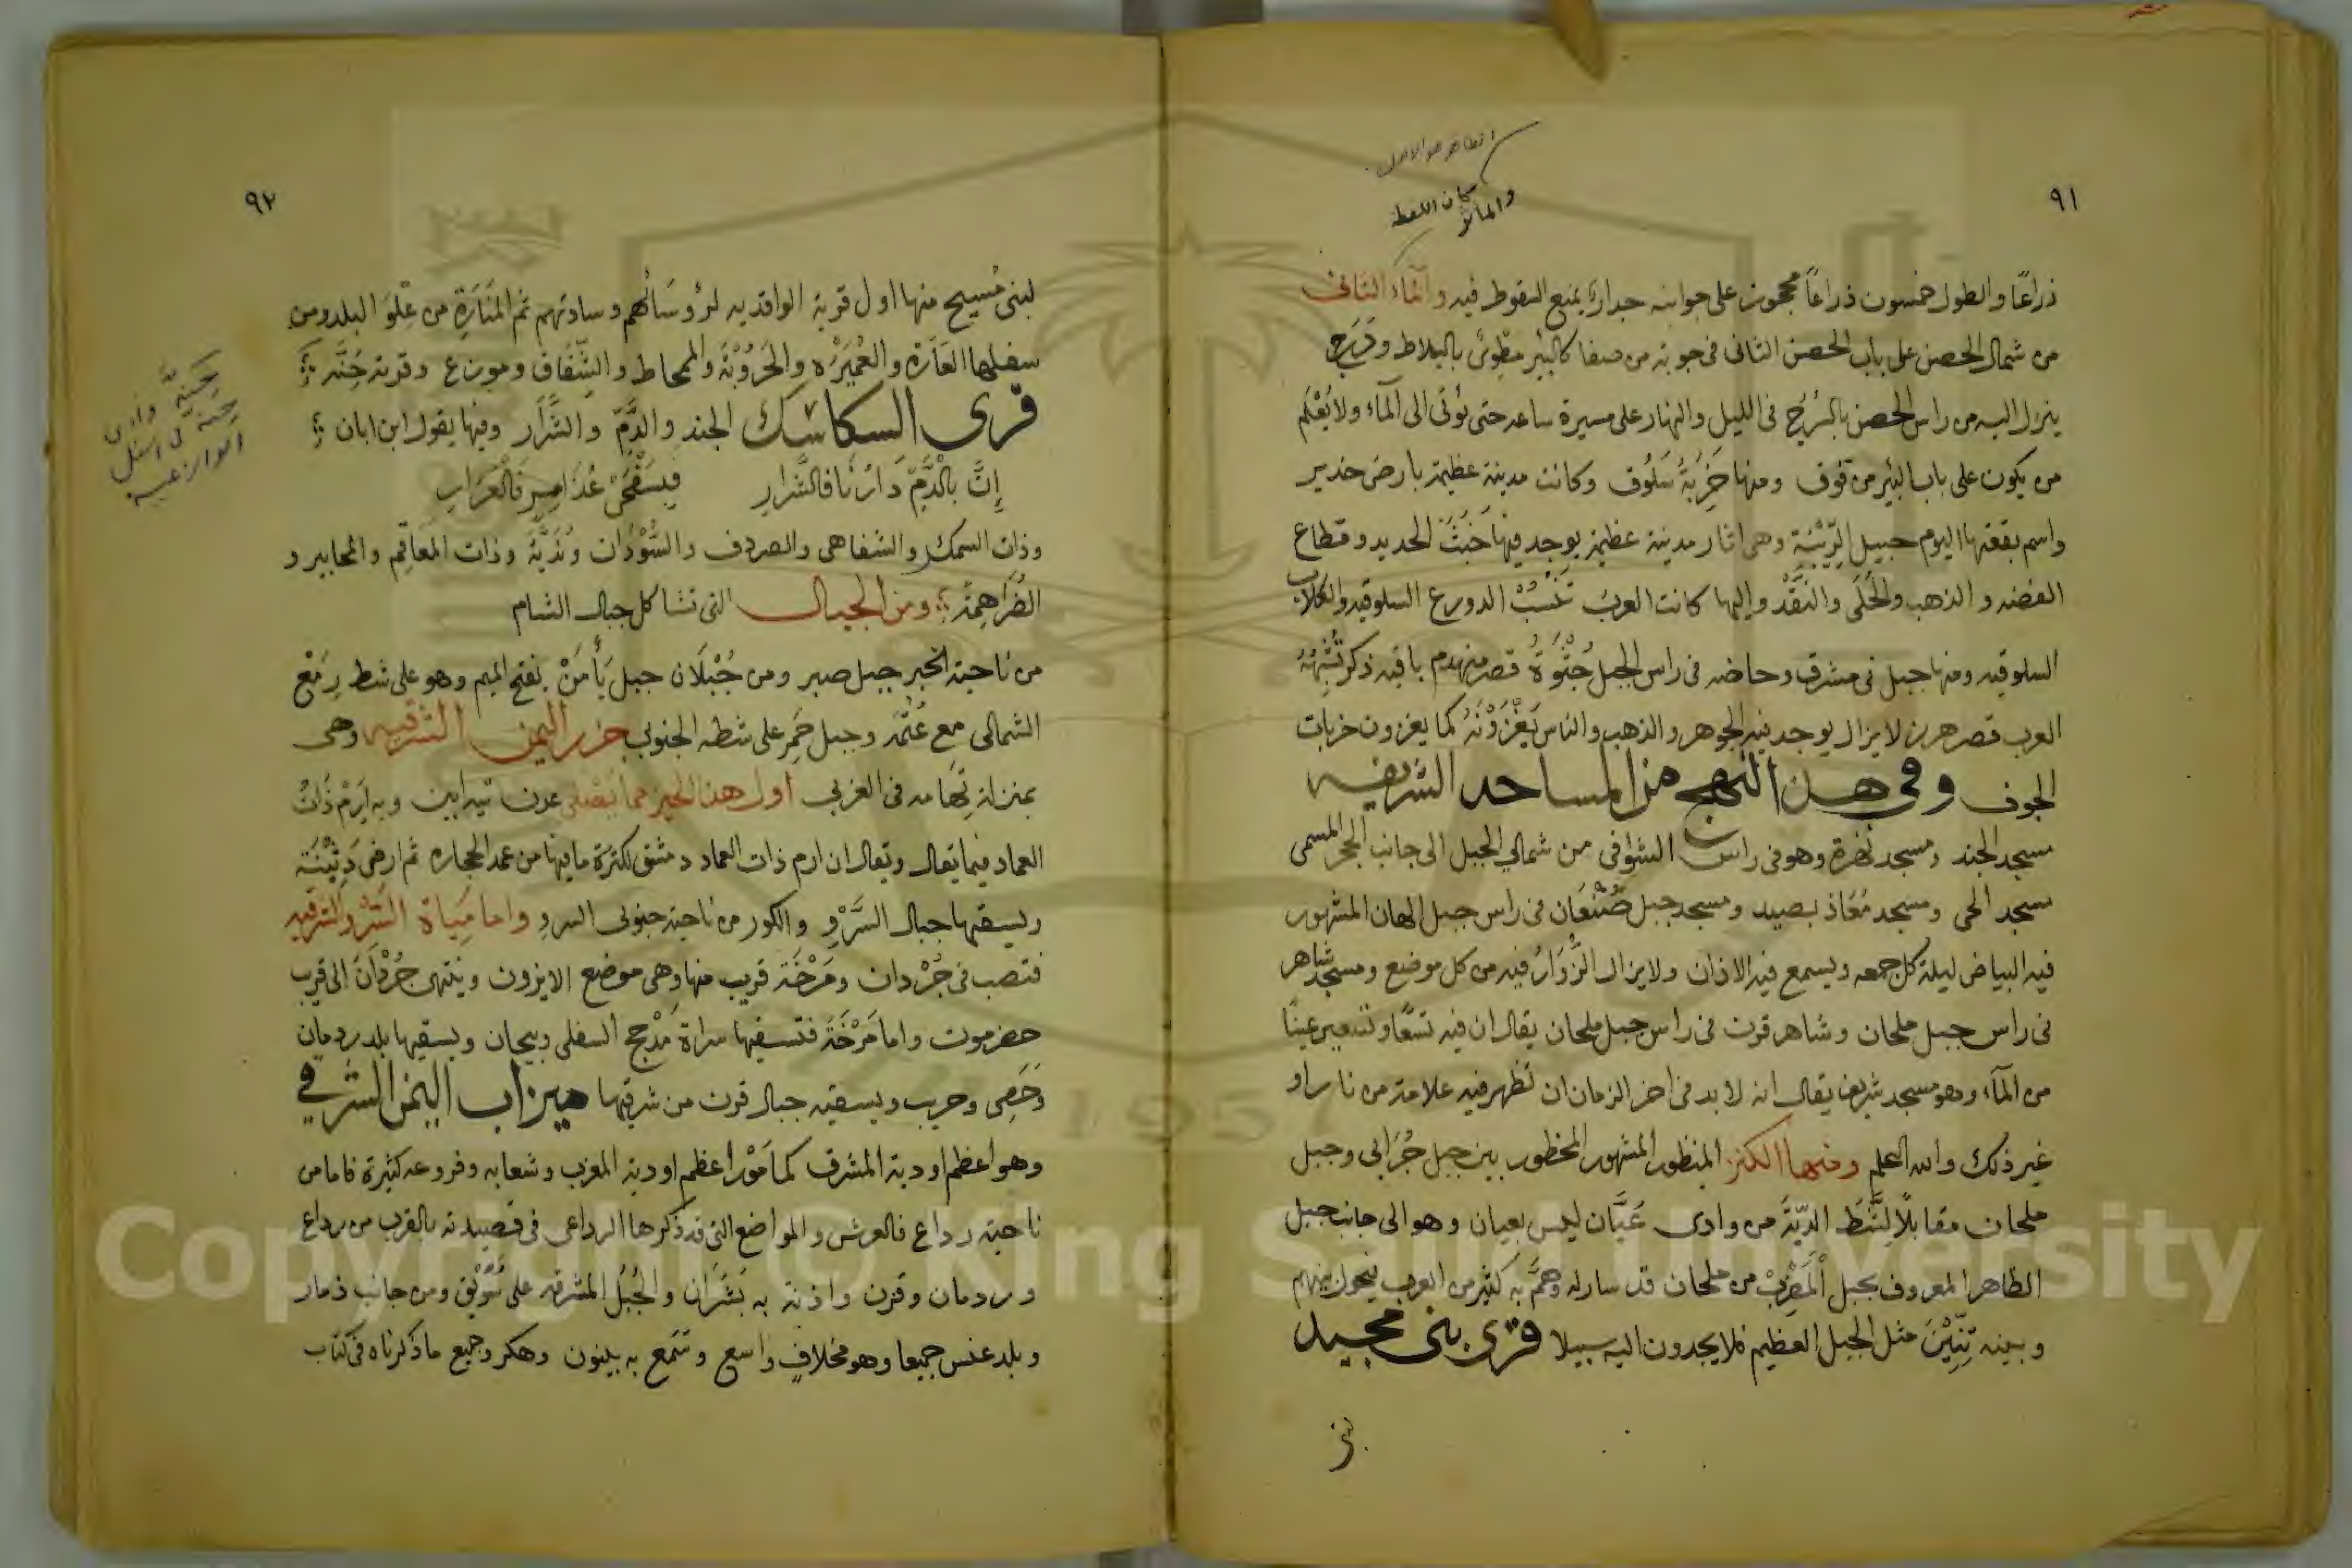 ٩١
الظاهر هو الاول
والماثر كان اللفظة
ذراعًا والطول خمسون ذراعاً محجوز على جوانبه جدارًا يمنع السقوط فيه والماء الثانى
من شمال الحصن على باب الحصن الثانى فى جوبة من صفا كالبئر مطوىّ بالبلاط ودرج
ينزل اليه من راس الحصن بالسُرُج فى الليل والنهار على مسيرة ساعه حتى يؤتى الى المآء ولا يُعْلَم
من يكون على باب البئر من فوق ومنها خَرِبَةُ سَلُوق وكانت مدينة عظيمة بارض خدير
واسم بقعتها اليوم حبيل الرِّيْبَة وهى اثار مدينة عظيمة يوجد فيها خَبَثَ الحديد وقطاع
الفضه والذهب والحُلَى والنَّقْد واليها كانت العربُ تَنْسُبُ الدورع السلوقيه والكلاب
السلوقيه ومنها جبل فى مشرق وحاضه فى راس الجبل جُتْوَةُ قصر منهدم باقيه ذكر تُشْبِهُهُ
العرب قصر هرن لا يزال يوجد فيه الجوهر والذهب والناس يَغْزُوْنَهُ كما يغزون خربات
الجوف وفى هذا النهج من المساجد الشريفه
مسجد الجند ومسجد نخرة وهو فى راس الشوافى من شمالي الجبل الى جانب الحجر المسمى
مسجد الحى ومسجد مُعَاذ بصيد ومسجد جبل صُنْعَان فى راس جبل الهان المشهور
فيه البياض ليلة كل جمعه ويسمع فيه الاذان ولا يزال الزُّوّارُ فيه من كل موضع ومسجد شاهر
فى راس جبل ملحان وشاهر قرن فى راس جبل ملحان يقال ان فيه تسعًا وتسعين عينًا
من المآء وهو مسجد شريف يقال انه لا بد فى اخر الزمان ان تظهر فيه علامة من نار او
غير ذلك والله اعلم ومنها الكنز المنظور المشهور المحظور بين جبل جُرَابى وجبل
ملحان مقابلًا لِشَّط الدِّيَّةَ من وادى عَيَّان ليس بعيان وهو الى جانب جبل
الظاهر المعروف بجبل المَضْرِب من ملحان قد سار له وهمَّ به كثير من العرب فيحول بينهم
وبينه تِنِّيْنَ مثل الجبل العظيم فلا يجدون اليه سبيلا قرى بنى مجيد
لبنى
٩٢
لبنى مُسِيح منها اول قرية الواقديه لرؤسائهم وسادتهم ثم المَنَارَةِ من عِلْوِ البلد ومن
سفلها العَارَة والعُمَيْرَه والحَرُوْبَةُ والمحاط والشِّفَاق وموزع وقرية جَنَّه
قرى السكاسك الجند والدُّمّ والشَّرار وفيها يقول ابن ابان
إِنَّ بِالدُّمِّ دَارُنَا فَالشَّرارِ فبسَفْحَىْ عُذَامِرٍ فَالْعَرَارِ
وذات السمك والشفاهى والصردف والسَّوْدَان ونَدَيَّةُ وذات المَعَاقِم والمحابير و
الضَرَاهِمَةُ ومن الجبال التى تشاكل جبال الشام
من ناحية الخبر جبل صبر ومن جُبْلَان جبل يَأْمَنْ بفتح الميم وهو على شط رِمَعْ
الشمالى مع عُتُمَه وجبل حَمِر على شطه الجنوبي جزر اليمن الشرقيه وهى
بمنزلة تِهَامه فى الغربي اول هذا الحيز مما يَصلى عدن تيه ابين وبه اِرَمْ ذَاتُ
العماد فيما يقال ويقال ان ارم ذات العماد دمشق لكثرة ما فيها من عمد الحجاره ثم ارض دَثِيْنَة
ويسقيها جبال السَّرْو والكور من ناحية جنوبى السرو واما مياة السَّرْو الشرقيه
فتصب فى جُرْدان ومَرْخَة قريب منها وهى موضع الايزون وينتهى جُرْدَانَ الى قرب
حضرموت واما مَرْخَةُ فتسقيها سراة مَذْحج السفلى وبيحان ويسقيها بلد ردمان
وحَصِى وحريب ويسقيه جبال قرن من شرقيها ميزاب اليمن الشرقي
وهو اعظم اودية المشرق كما مَوْر اعظم اودية المغرب وشعابه وفروعه كثيرة فاما من
ناحية رداع فالعرش والمواضع التى قد ذكرها الرداعى فى قصيدته بالقرب من رداع
وردمان وقرن واذنة به بَشَرَان والجُبُل المشرقه على سُوَيْق ومن جانب ذمار
وبلد عنس جميعا وهو مخلافٍ واسع وتَّمَع به بينون وهكر وجميع ما ذكرناه فى كتاب